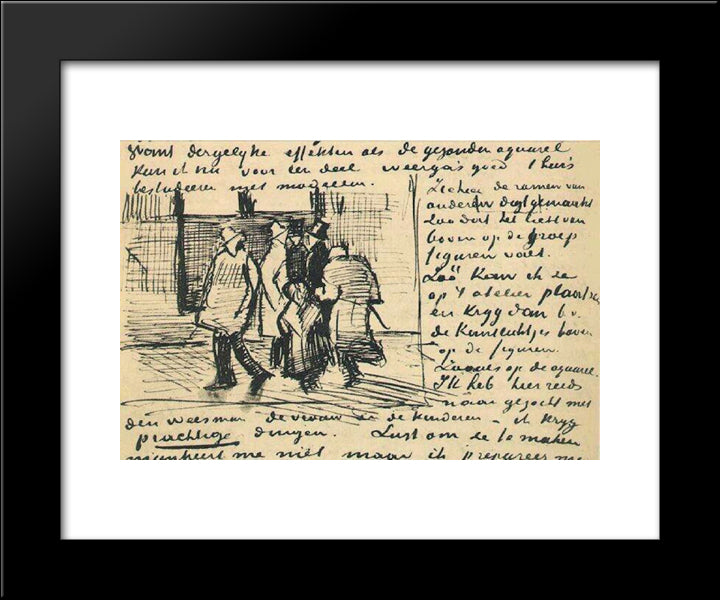 want dergelyke effekten als de gezonden aquarel
kan ik nu voor een deel weergaʼs goed thuis
bestudeeren met modellen.
Ziehier de ramen van
onderen digt gemaakt
Zoodat het licht van
boven op de groep
figuren valt.
Zoo kan ik ze
op 't atelier plaatsen
en Kryg dan
de Kantlichtjes boven
op de figuren.
Zooals op de aquarel.
Ik heb hier reeds
naar gezocht met
den weesman de vrouw en de kinderen – ik Kryg
prachtige dingen. Lust om ze te maken
mankeert me niet maar ik prepareer me